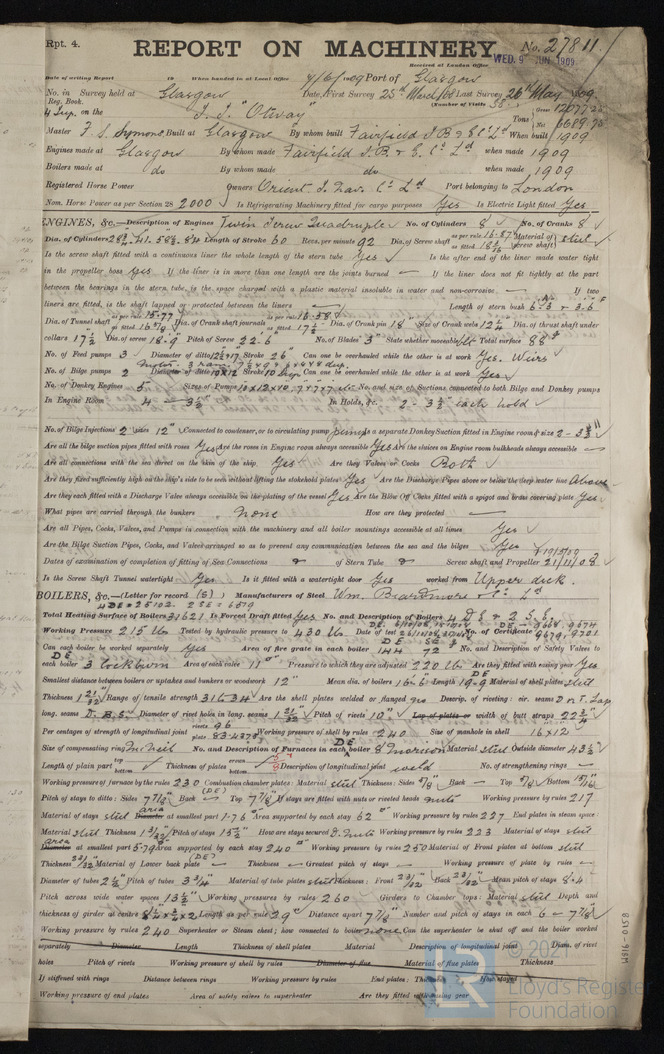 Rpt. 4.
REPORT ON MACHINERY.
No. 27811
Received at London Office
WED. 9 JUN 1909
Date of writing Report 19 When handed in at Local Office 4/6/1909 Port of Glasgow
No. in Survey held at Glasgow Date, First Survey 25th March/08 Last Survey 26th May 1909
Reg. Book. (Number of Visits 58)
on the "Otway" Tons Gross 12077
Net 6689
Master Symons Built at Glasgow By whom built Fairfield S.B. & E. Co Ld When built 1909
Engines made at Glasgow By whom made Fairfield S.B. & E. Co Ld when made 1909
Boilers made at do By whom made do when made 1909
Registered Horse Power Owners Orient S. Nav. Co Ld Port belonging to London
Nom. Horse Power as per Section 28 2000 Is Refrigerating Machinery fitted for cargo purposes Yes Is Electric Light fitted Yes
ENGINES, &c.—Description of Engines Twin Screw Quadruple No. of Cylinders 8 No. of Cranks 8
Dia. of Cylinders Length of Stroke 60 Revs. per minute 92 Dia. of Screw shaft as per rule 16.87 as fitted Material of screw shaft steel
Is the screw shaft fitted with a continuous liner the whole length of the stern tube Yes Is the after end of the liner made water tight
in the propeller boss Yes If the liner is in more than one length are the joints burned — If the liner does not fit tightly at the part
between the bearings in the stern tube, is the space charged with a plastic material insoluble in water and non-corrosive. — If two
liners are fitted, is the shaft lapped or protected between the liners — Length of stern bush
Dia. of Tunnel shaft as per rule 15.77 as fitted 16 7/8 Dia. of Crank shaft journals as per rule 16.58 as fitted 17 1/2 Dia. of Crank pin 18" Size of Crank webs Dia. of thrust shaft under
collars 17 1/2 Dia. of screw 18.9 Pitch of Screw 22.6 No. of Blades 3 State whether moveable Total surface 88
No. of Feed pumps 3 Diameter of ditto Stroke 26" Can one be overhauled while the other is at work Yes. Weirs
No. of Bilge pumps 2 Diameter of ditto Stroke Can one be overhauled while the other is at work Yes
No. of Donkey Engines 5 Sizes of Pumps 10x12x10. 7x7x7 No. and size of Suctions connected to both Bilge and Donkey pumps
In Engine Room 4 — 3 1/2" In Holds, &c. 2 - 3 1/2" each hold
No. of Bilge Injections 2 sizes 12" Connected to condenser, or to circulating pump pumps Is a separate Donkey Suction fitted in Engine room & size 2 - 3 1/2"
Are all the bilge suction pipes fitted with roses Yes Are the roses in Engine room always accessible Yes Are the sluices on Engine room bulkheads always accessible —
Are all connections with the sea direct on the skin of the ship Yes Are they Valves or Cocks Both
Are they fixed sufficiently high on the ship's side to be seen without lifting the stokehold plates Yes Are the Discharge Pipes above or below the deep water line Above
Are they each fitted with a Discharge Valve always accessible on the plating of the vessel Yes Are the Blow Off Cocks fitted with a spigot and brass covering plate Yes
What pipes are carried through the bunkers None How are they protected —
Are all Pipes, Cocks, Valves, and Pumps in connection with the machinery and all boiler mountings accessible at all times Yes
Are the Bilge Suction Pipes, Cocks, and Valves arranged so as to prevent any communication between the sea and the bilges Yes
Dates of examination of completion of fitting of Sea Connections of Stern Tube Screw shaft and Propeller 21/11/08
Is the Screw Shaft Tunnel watertight Yes Is it fitted with a watertight door Yes worked from Upper deck.
BOILERS, &c.—(Letter for record (S) ) Manufacturers of Steel Wm. Beardmore & Co. Ld
4 DE = 25102. 2 SE = 6519
Total Heating Surface of Boilers 31621 Is Forced Draft fitted Yes No. and Description of Boilers 4 D.E & 2 S.E.
Working Pressure 215 lb Tested by hydraulic pressure to 430 lb Date of test No. of Certificate 9679, 9701
Can each boiler be worked separately Yes Area of fire grate in each boiler DE 144 SE 72 No. and Description of Safety Valves to
each boiler 3 Cockburn Area of each valve 11 Pressure to which they are adjusted 220 lb Are they fitted with easing gear Yes
Smallest distance between boilers or uptakes and bunkers or woodwork 12" Mean dia. of boilers 16-6 Length 19-9 Material of shell plates steel
Thickness 1 21/32" Range of tensile strength 31 & 34 Are the shell plates welded or flanged no Descrip. of riveting: cir. seams D.R. Lap
long. seams D.B.S. Diameter of rivet holes in long. seams 1 21/32" Pitch of rivets 10" Lap of plates or width of butt straps 22 3/4
Per centages of strength of longitudinal joint rivets 96 plate 83.4375 Working pressure of shell by rules 240 Size of manhole in shell 16 x 12
Size of compensating ring McNeil No. and Description of Furnaces in each boiler DE 8 Morison Material steel Outside diameter 43 1/2
Length of plain part top bottom Thickness of plates crown bottom Description of longitudinal joint weld No. of strengthening rings —
Working pressure of furnace by the rules 230 Combustion chamber plates: Material steel Thickness: Sides 5/8 Back — Top 5/8 Bottom 15/16
Pitch of stays to ditto: Sides 7 7/8 Back — Top 7 7/8 If stays are fitted with nuts or riveted heads nuts Working pressure by rules 217
Material of stays steel Diameter area at smallest part 1.76 Area supported by each stay 62 Working pressure by rules 227 End plates in steam space:
Material steel Thickness 1 3/32 Pitch of stays 15 1/2 How are stays secured D. nuts Working pressure by rules 223 Material of stays steel
Diameter area at smallest part 5.79 Area supported by each stay 240 Working pressure by rules 250 Material of Front plates at bottom steel
Thickness Material of Lower back plate (DE) — Thickness — Greatest pitch of stays — Working pressure of plate by rules —
Diameter of tubes 2 1/2 Pitch of tubes 3 3/4 Material of tube plates steel Thickness: Front 23/32 Back 23/32 Mean pitch of stays
Pitch across wide water spaces 13 1/2 Working pressures by rules 260 Girders to Chamber tops: Material steel Depth and
thickness of girder at centre Length as per rule 29" Distance apart 7 7/8" Number and pitch of stays in each 6 — 7 7/8
Working pressure by rules 240 Superheater or Steam chest; how connected to boiler none Can the superheater be shut off and the boiler worked
separately Diameter Length Thickness of shell plates Material Description of longitudinal joint Diam. of rivet
holes Pitch of rivets Working pressure of shell by rules Diameter of flue Material of flue plates Thickness
If stiffened with rings Distance between rings Working pressure by rules End plates: Thickness How stayed
Working pressure of end plates Area of safety valves to superheater Are they fitted with easing gear
W516-0158
© 2021
LR
Lloyd's Register
Foundation